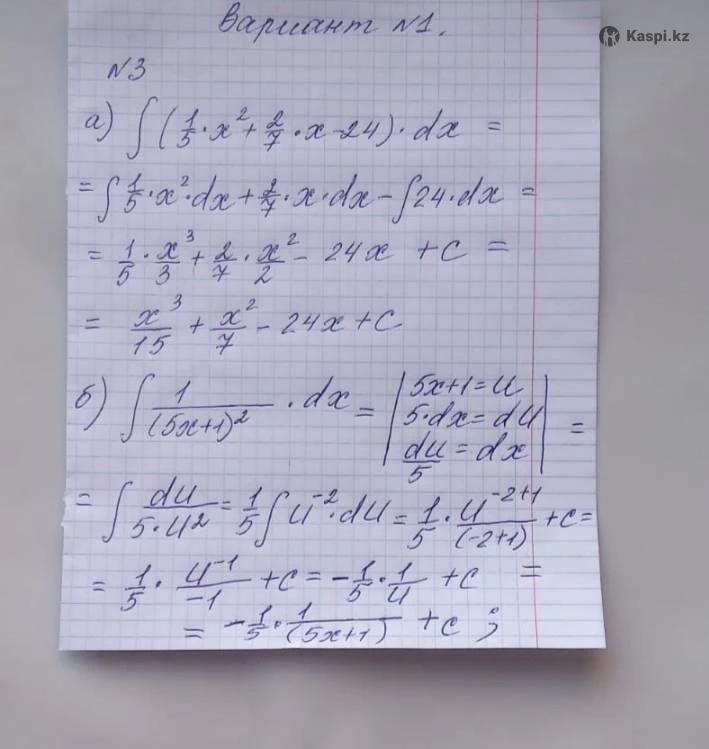 Вариант №1.
Kaspi.kz
№3
а) ∫(1/5·x²+2/7·x-24)·dx =
=∫1/5·x²·dx+2/7·x·dx-∫24·dx=
=1/5·x³/3+2/7·x²/2-24x+c=
=x³/15+x²/7-24x+C
б) ∫1/(5x+1)²·dx=|5x+1=u
5·dx=du
du/5=dx|=
=∫du/(5·u²)=1/5∫u⁻²·du=1/5·u⁻²⁺¹/(-2+1)+c=
=1/5·u⁻¹/-1+c=-1/5·1/u+c=
=-1/5·1/(5x+1)+c;